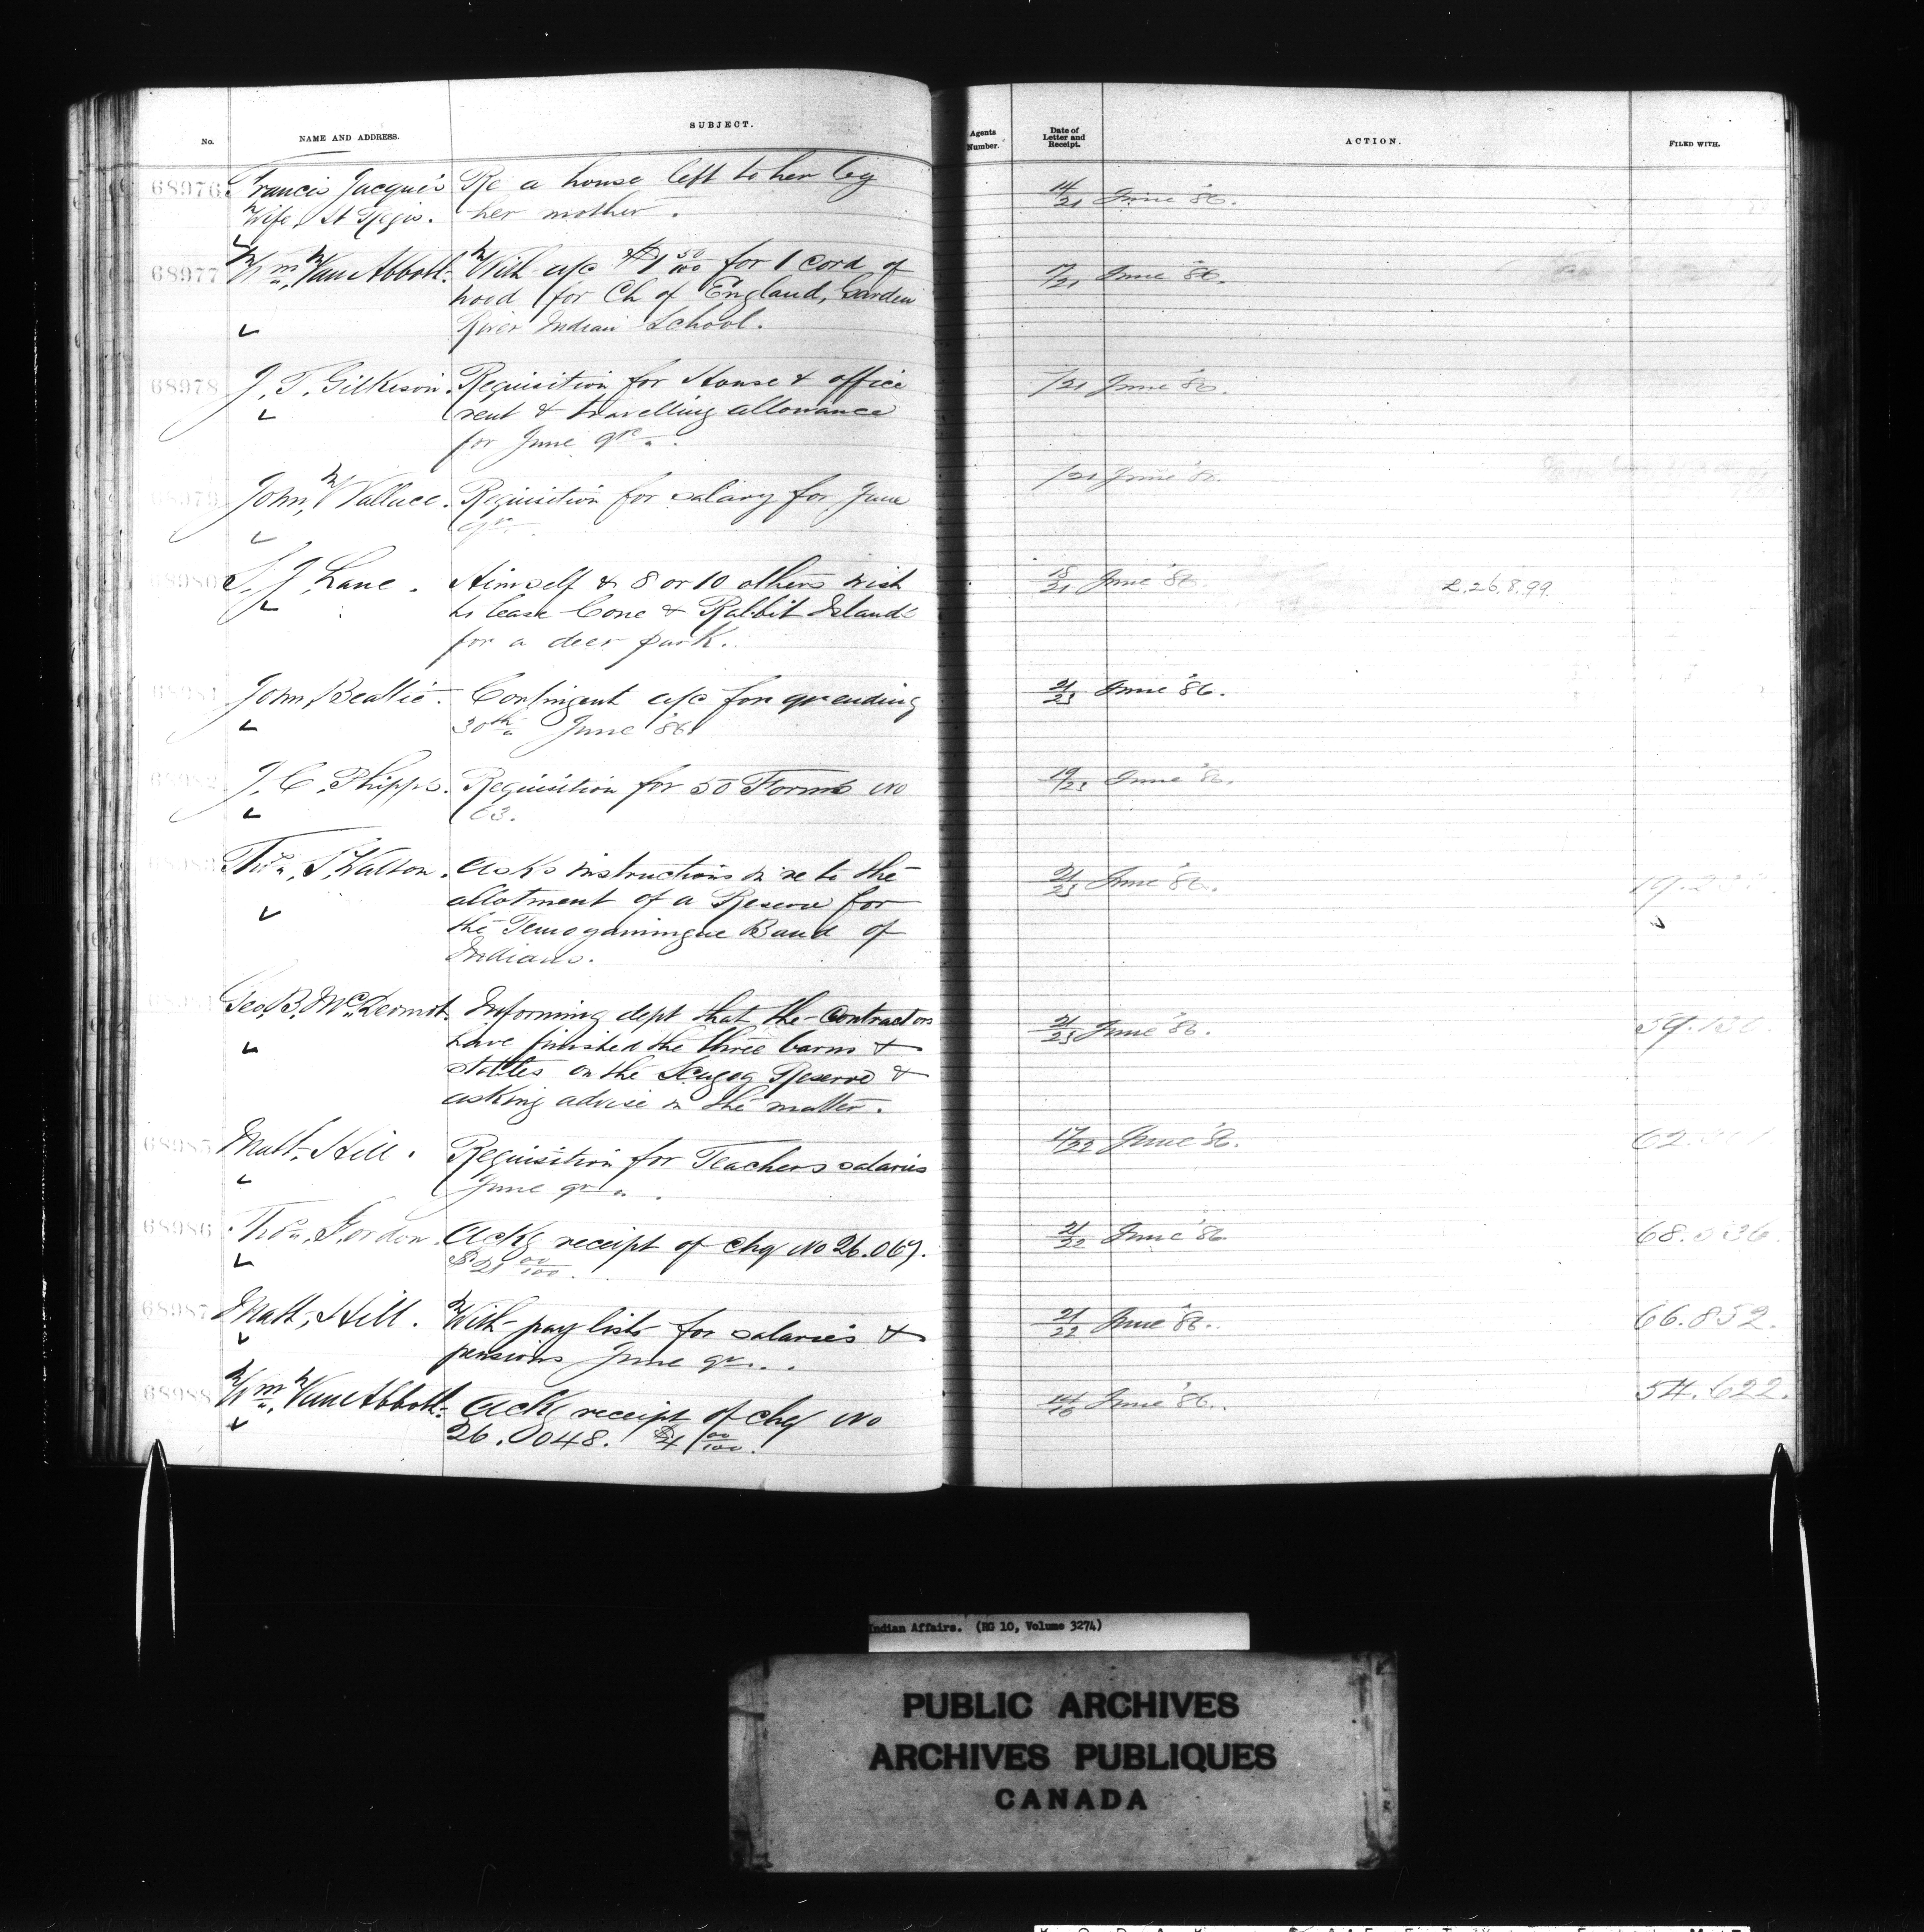 No. NAME AND ADDRESS. SUBJECT. Agents Number. Date of Letter and Receipt. ACTION. FILED WITH.
68976 Francis Jacque's Re a house left to her by 14/21 June '86.
Wife, St Regis. her mother.
68977 Wm. Van Abbott. With a/c $1 50/100 for 1 cord of 7/21 June '86.
wood for Ch of England, Garden
River Indian School.
68978 J. T. Gilkison. Requisition for House & office /21 June '86.
rent & travelling allowance
for June qr.
68979 John Wallace. Requisition for salary for June /21 June '86.
qr.
68980 T. J. Lane. Himself & 8 or 10 others wish 18/21 June '86 L.26.8.99.
to lease Cone & Rabbit Islands
for a deer park.
68981 John Beattie. Contingent a/c for qr ending 21/23 June '86.
30th June '86.
68982 J. C. Phipps. Requisition for 50 Forms No 19/23 June '86.
63.
68983 Thos. S. Walton. Asks instructions in re to the 21/23 June '86.
allotment of a Reserve for
the Temogamingue Band of
Indians.
Geo. B. McDermot. Informing dept that the contractors 21/23 June '86.
have finished the three barns &
stables on the Scugog Reserve &
asking advise in the matter.
68985 Matt. Hill. Requisition for Teachers salaries 17/22 June '86.
June qr.
68986 Thos. Gordon. Ackg receipt of chq No 26.069. 21/22 June '86. 68.536.
$21 00/100.
68987 Matt. Hill. With pay lists for salaries & 21/22 June '86. 66.852.
pensions June qr.
68988 Wm. Van Abbott. Ackg receipt of chq No 14/16 June '86. 54.622.
26.0048. $4 00/100.
Indian Affairs. (RG 10, Volume 3274)
PUBLIC ARCHIVES
ARCHIVES PUBLIQUES
CANADA